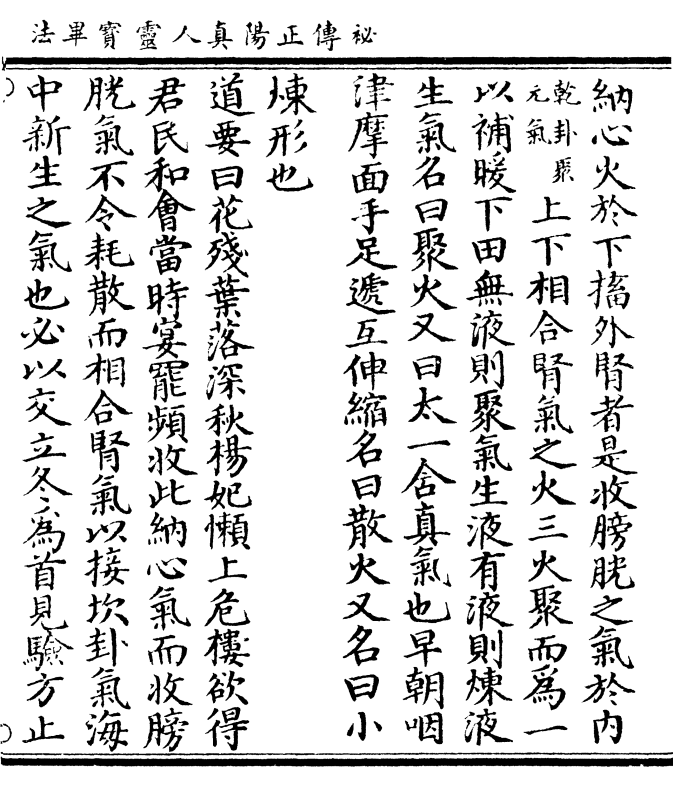 祕傳正陽真人靈寶畢法
納心火於下搐外腎者是收膀胱之氣於內
乾卦聚元氣上下相合腎氣之火三火聚而為一
以補暖下田無液則聚氣生液有液則煉液
生氣名曰聚火又曰太一含真氣也早朝咽
津摩面手足遞互伸縮名曰散火又名曰小
煉形也
道要曰花殘葉落深秋楊妃懶上危樓欲得
君民和會當時宴罷頻收此納心氣而收膀
胱氣不令耗散而相合腎氣以接坎卦氣海
中新生之氣也必以交立冬為首見驗方止